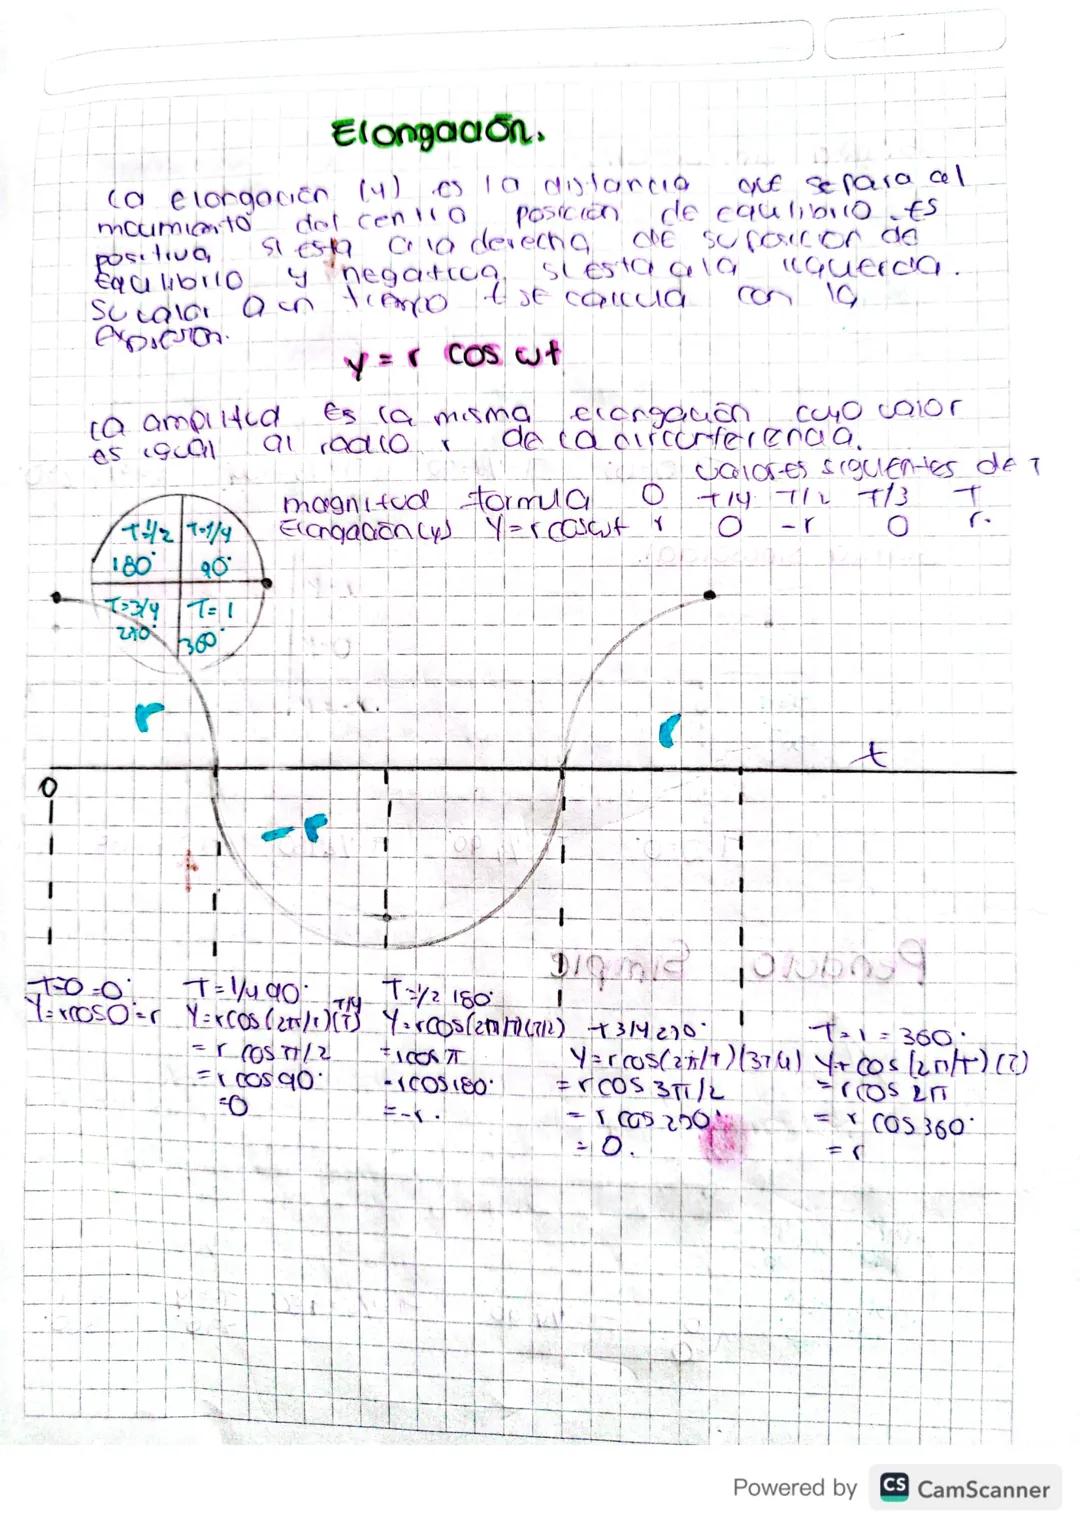 Elongación.
La elongación (y) es la distancia que separa al
movimiento del centro posición de equilibrio. Es
positiva, si esta a la derecha de su posicion de
Equilibrio y negativa si esta a la izquierda.
Su valor a un tiempo t se calcula con la
Expresion.
y = r cos ωt
La amplitud es la misma elongación cuyo valor
es igual al radio r de la circunferencia.
Valores siguientes de T
magnitud formula 0 T/4 T/2 T/3 T
Elongación (y) Y=r cosωt r 0 -r 0 r.
T=1/2 T=1/4
180° 90°
T=3/4 T=1
270° 360°
r
r
t
0
-r
T=0=0°
Y=rcos0°=r
T=1/4 90°
Y=rcos(2π/T)(T/4)
=r cos π/2
=r cos 90°
=0
T=1/2 180°
Y=rcos(2π/T)(T/2)
=rcos π
=rcos180°
=-r.
T 3/4 270°
Y=rcos(2π/T)(3T/4)
=rcos 3π/2
=r cos 270°
=0.
T=1=360°
Y=r cos(2π/T)(T)
=rcos 2π
=r cos 360°
=r
Powered by CS CamScanner